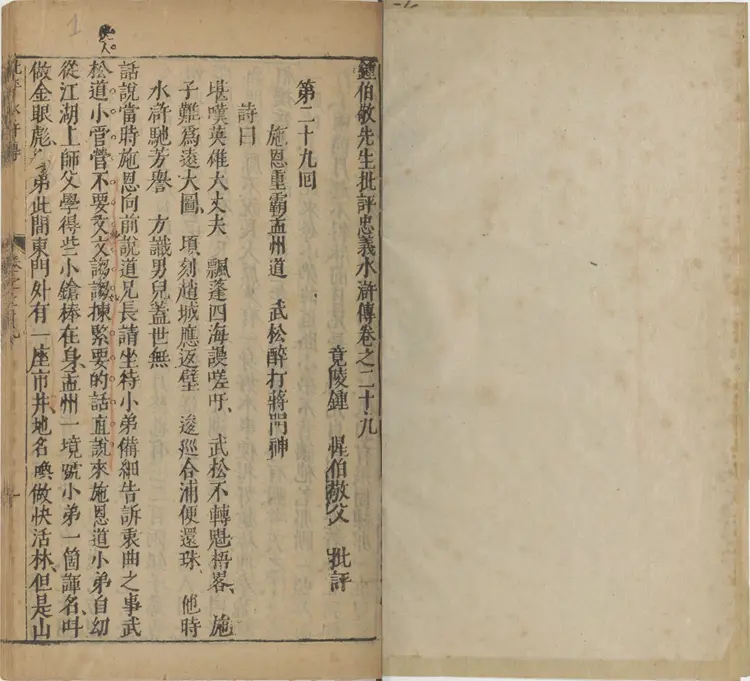 鍾伯敬先生批評忠義水滸傳卷之二十九
竟陵鍾 惺伯敬父 批評
第二十九回
施恩重霸孟州道 武松醉打蔣門神
詩曰
堪嘆英雄大丈夫 飄蓬四海謾嗟吁、 武松不轉魁梧畧、 施
子難爲遠大圖、 頃刻趙城應返璧 逡廵合浦便還珠、 他時
水滸馳芳譽 方識男兒蓋世無
話說當時施恩向前說道兄長請坐待小弟備細告訴衷曲之事武
松道小管營不要文文謅謅揀緊要的話直說來施恩道小弟自幼
從江湖上師父學得些小鎗棒在身、孟州一境號小弟一箇諢名、叫
做金眼彪、小弟此間東門外有一座市井、地名喚做快活林、但是山
批評水滸傳
卷之二十九
一
1